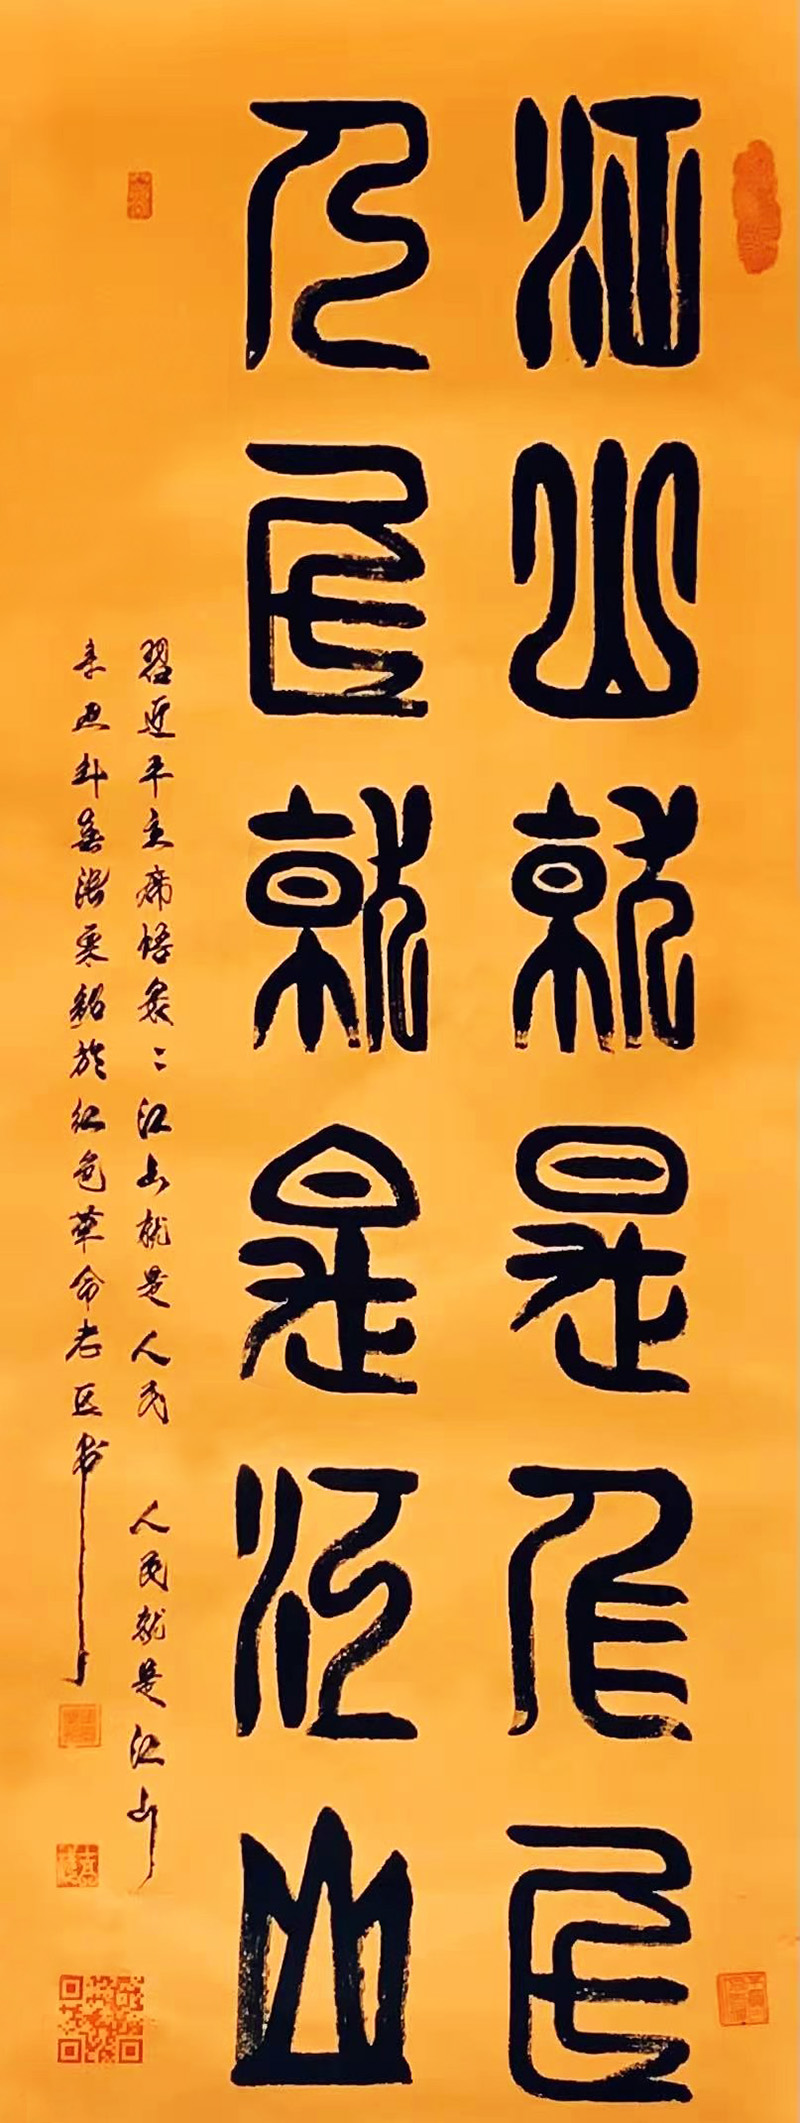 江山就是人民
人民就是江山
习近平主席悟众：江山就是人民 人民就是江山
辛丑 于红色革命老区书